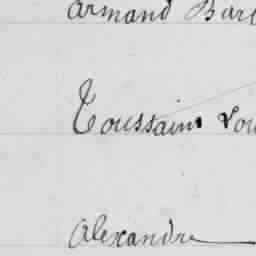 Armand Bar
Toussaint Lou
Alexandre